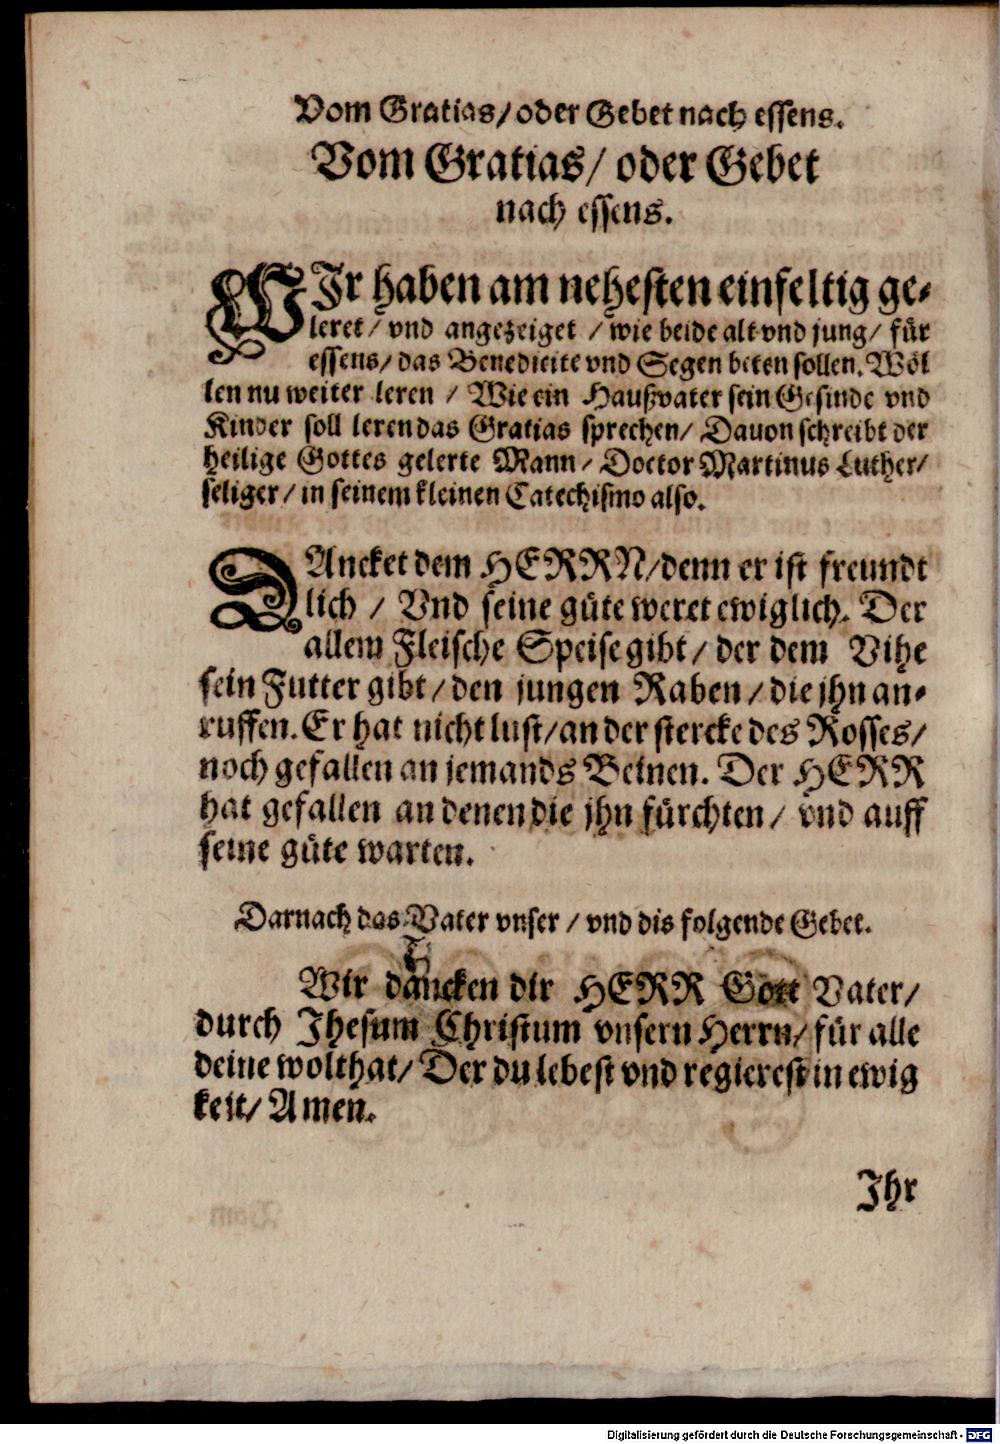 Vom Gratias/ oder Gebet nach essens.
Vom Gratias/ oder Gebet
nach essens.
WIr haben am nehesten einfeltig ge-
leret/ vnd angezeiget / wie beide alt vnd jung/ für
essens/ das Benedicite vnd Segen beten sollen. Wöl
len nu weiter leren / Wie ein Haußvater sein Gesinde vnd
Kinder soll leren das Gratias sprechen/ Dauon schreibt der
heilige Gottes gelerte Mann/ Doctor Martinus Luther/
seliger/ in seinem kleinen Catechismo also.
DAncket dem HERRN/ denn er ist freundt
lich / Vnd seine güte weret ewiglich. Der
allem Fleische Speise gibt/ der dem Vihe
sein Futter gibt/ den jungen Raben/ die jhn an-
ruffen. Er hat nicht lust/ an der stercke des Rosses/
noch gefallen an jemands Beinen. Der HERR
hat gefallen an denen die jhn fürchten/ vnd auff
seine güte warten.
Darnach das Vater vnser / vnd dis folgende Gebet.
Wir dancken dir HERR Gott Vater/
durch Jhesum Christum vnsern Herrn/ für alle
deine wolthat/ Der du lebest vnd regierest in ewig
keit/ Amen.
Jhr
Digitalisierung gefördert durch die Deutsche Forschungsgemeinschaft - DFG